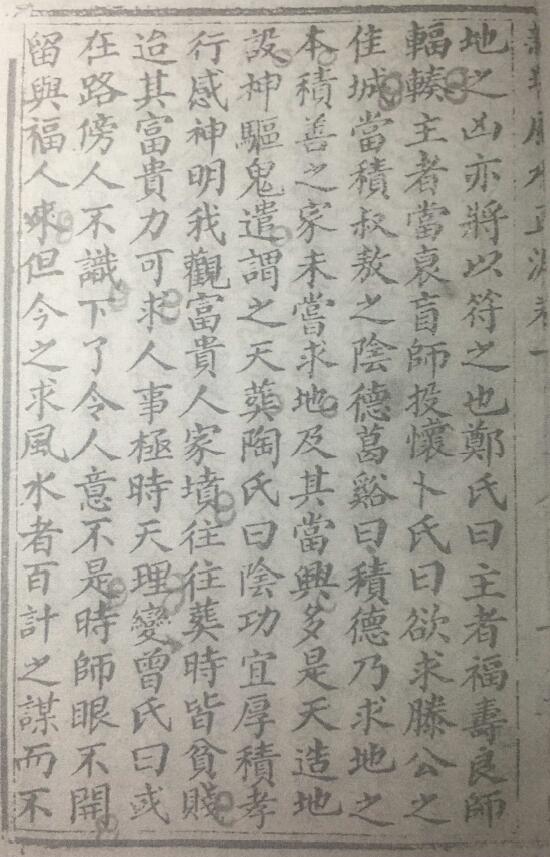 地之凶亦將以符之也鄭氏曰主者福壽良師
輻輳主者當衰盲師投懷卜氏曰欲求滕公之
佳城當積叔敖之陰德葛谿曰積德乃求地之
本積善之家未嘗求地及其當興多是天造地
設神驅鬼遣謂之天葬陶氏曰陰功宜厚積孝
行感神明我觀富貴人家墳往往葬時皆貧賤
迨其富貴力可求人事極時天理變曾氏曰或
在路傍人不識下了令人意不是時師眼不開
留與福人來但今之求風水者百計之謀而不